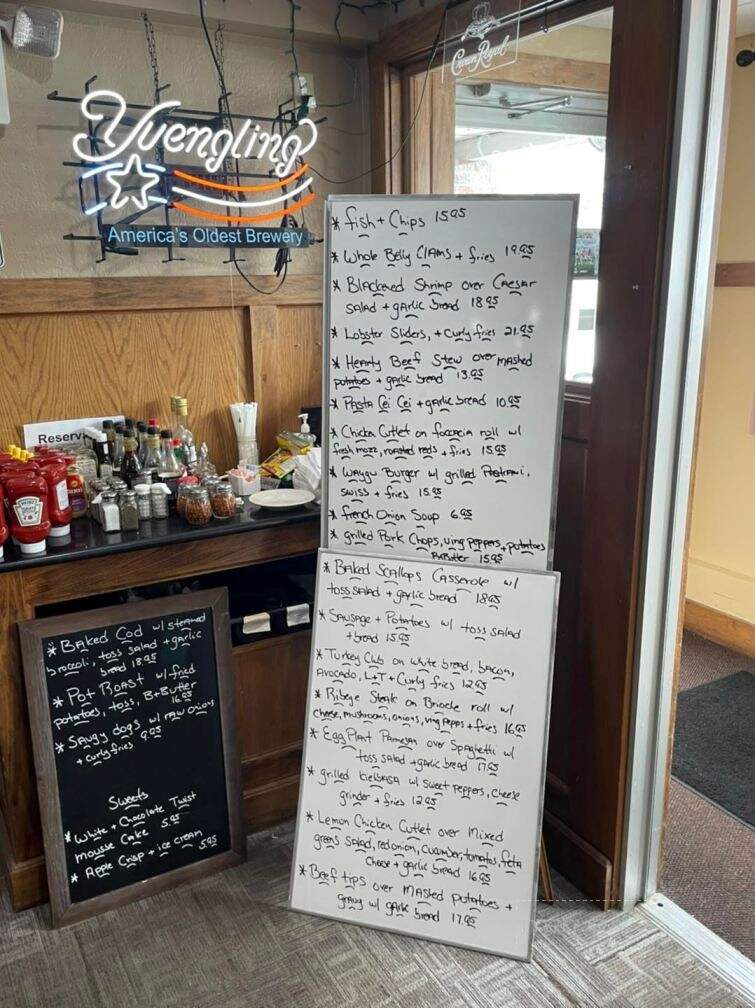 Crown Royal
Yuengling
America's Oldest Brewery
Reserv
HEINZ
* fish + Chips 15.95
* Whole Belly Clams + fries 19.95
* Blackened Shrimp over Caesar
salad + garlic bread 18.95
* Lobster Sliders, + Curly fries 21.95
* Hearty Beef Stew over mashed
potatoes + garlic bread 13.95
* Pasta Cei Cei + garlic bread 10.95
* Chicken Cutlet on foccacia roll w/
fresh mozz, roasted reds + fries 15.95
* Waygu Burger w/ grilled Pastrami,
swiss + fries 15.95
* french Onion Soup 6.95
* grilled Pork Chops, ving peppers, + potatoes
15.95
* Baked Scallops Casserole w/
toss salad + garlic bread 18.95
* Sausage + Potatoes w/ toss salad
+ bread 15.95
* Turkey Club on white bread, bacon,
Avocado, L+T + Curly fries 12.95
* Ribeye Steak on Brioche roll w/
cheese, mushrooms, onions, ving pepps + fries 16.95
* EggPlant Parmesan over Spaghetti w/
toss salad + garlic bread 17.95
* grilled kielbasa w/ sweet peppers, cheese
grinder + fries 12.95
* Lemon Chicken Cutlet over Mixed
greens Salad, red onion, cucumber, tomatos, feta
Cheese + garlic bread 16.95
* Beef tips over mashed potatoes +
gravy w/ garlic bread 17.95
* Baked Cod w/ steamed
broccoli, toss salad + garlic
bread 18.95
* Pot Roast w/ fried
potatoes, toss, B+Butter
16.95
* Saugy dogs w/ raw onions
+ curly fries 9.95
Sweets
* White + Chocolate Twist
mousse Cake 5.95
* Apple Crisp + ice cream 5.95